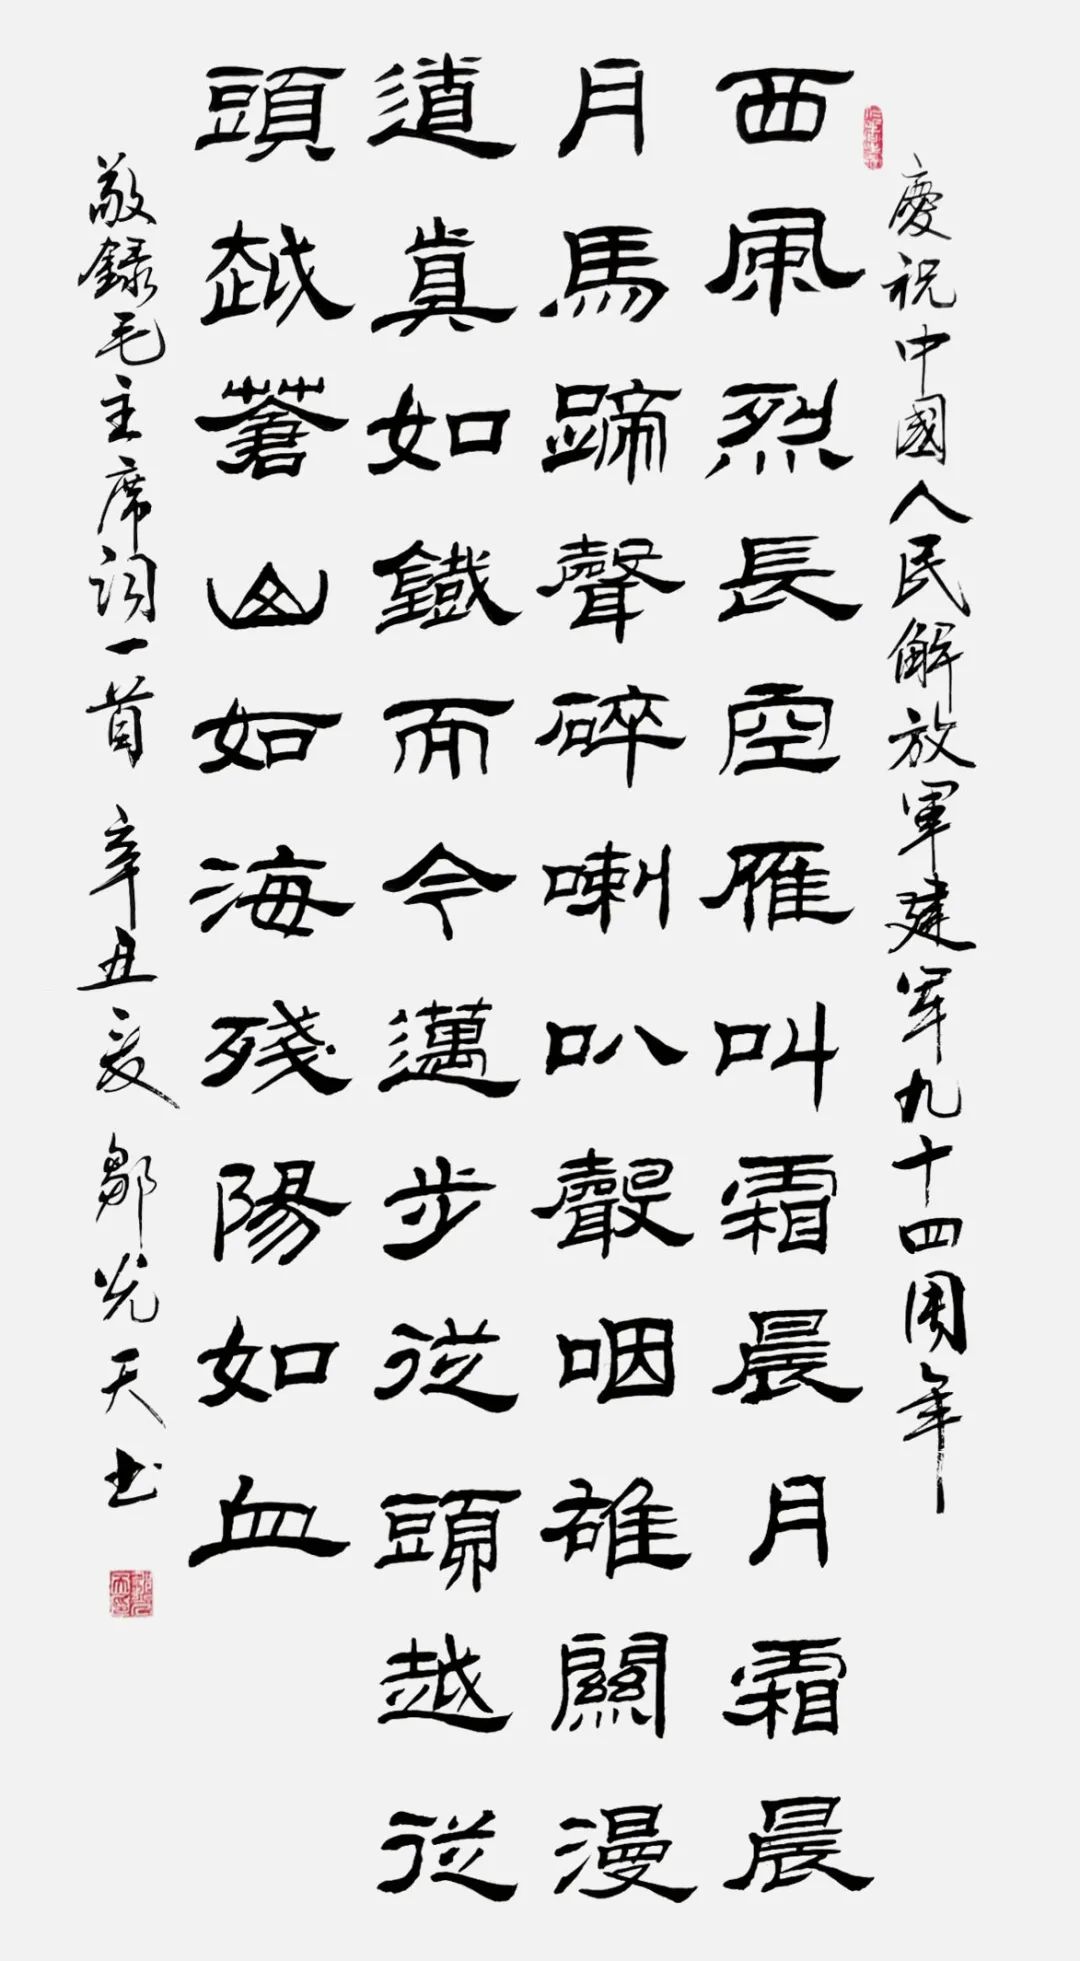 慶祝中國人民解放軍建軍九十四周年
西風烈長空雁叫霜晨月霜晨
月馬蹄聲碎喇叭聲咽雄關漫
道真如鐵而今邁步從頭越從
頭越蒼山如海殘陽如血
敬録毛主席詞一首 辛丑夏 鄒光天书